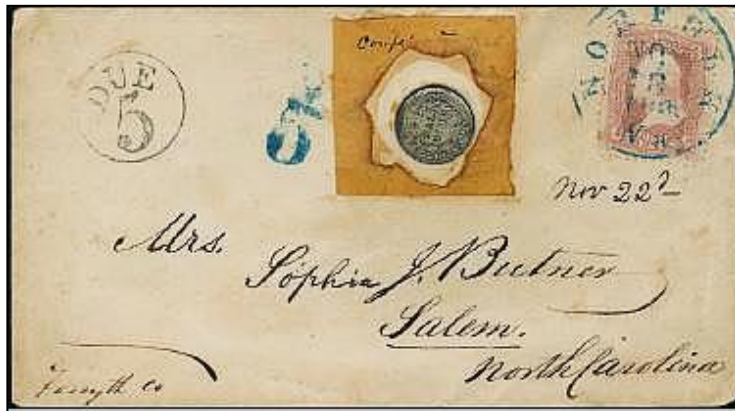 DUE
5
NORFOLK
VA.
Nov 22d
Mrs.
Sophia J. Butner
Salem.
North Carolina
Forsyth co